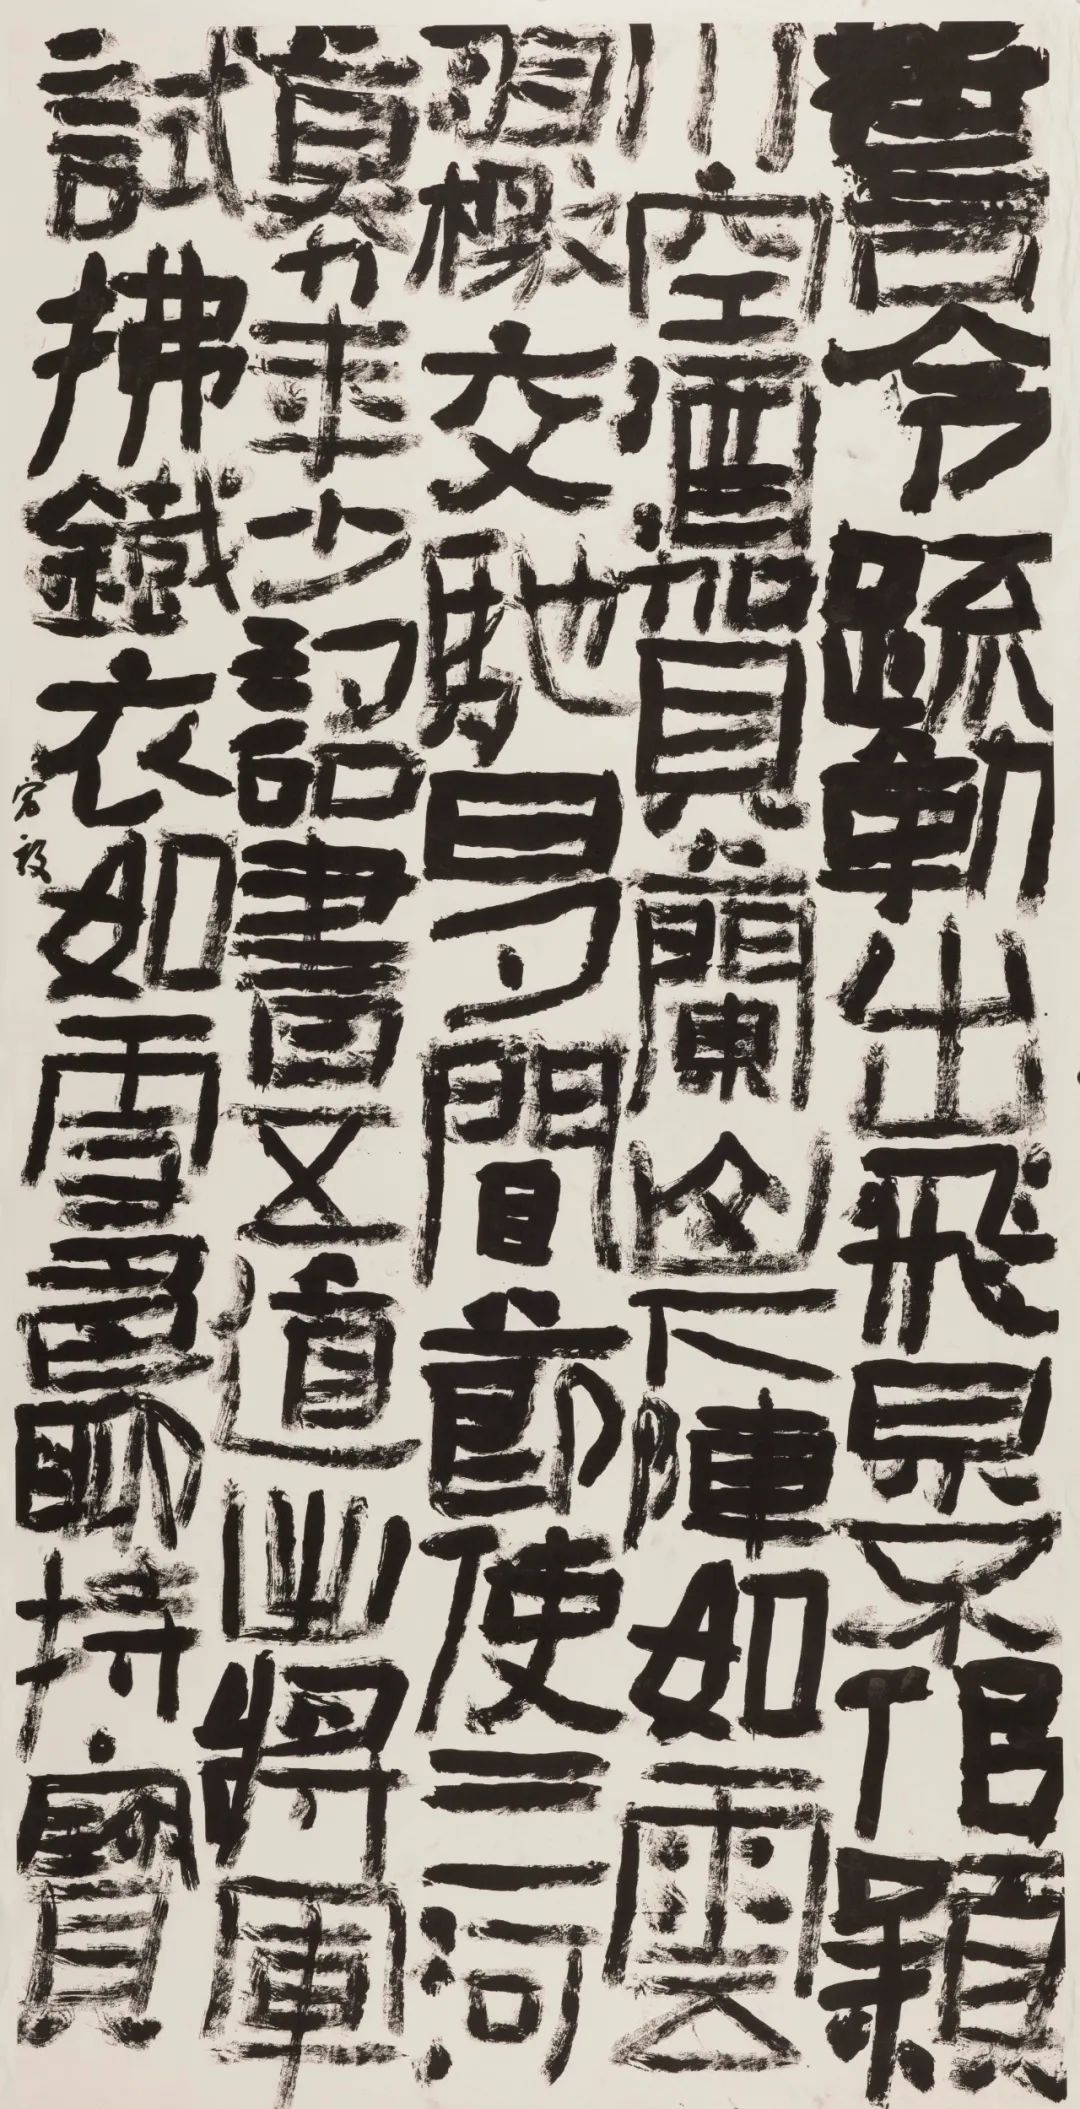 誓令疏勒出飛泉不似潁
川空酒賀蘭山下陣如雲
羽檄交馳日夕聞節使三河
募年少詔書五道出將軍
試拂鐵衣如雪色聊持寶